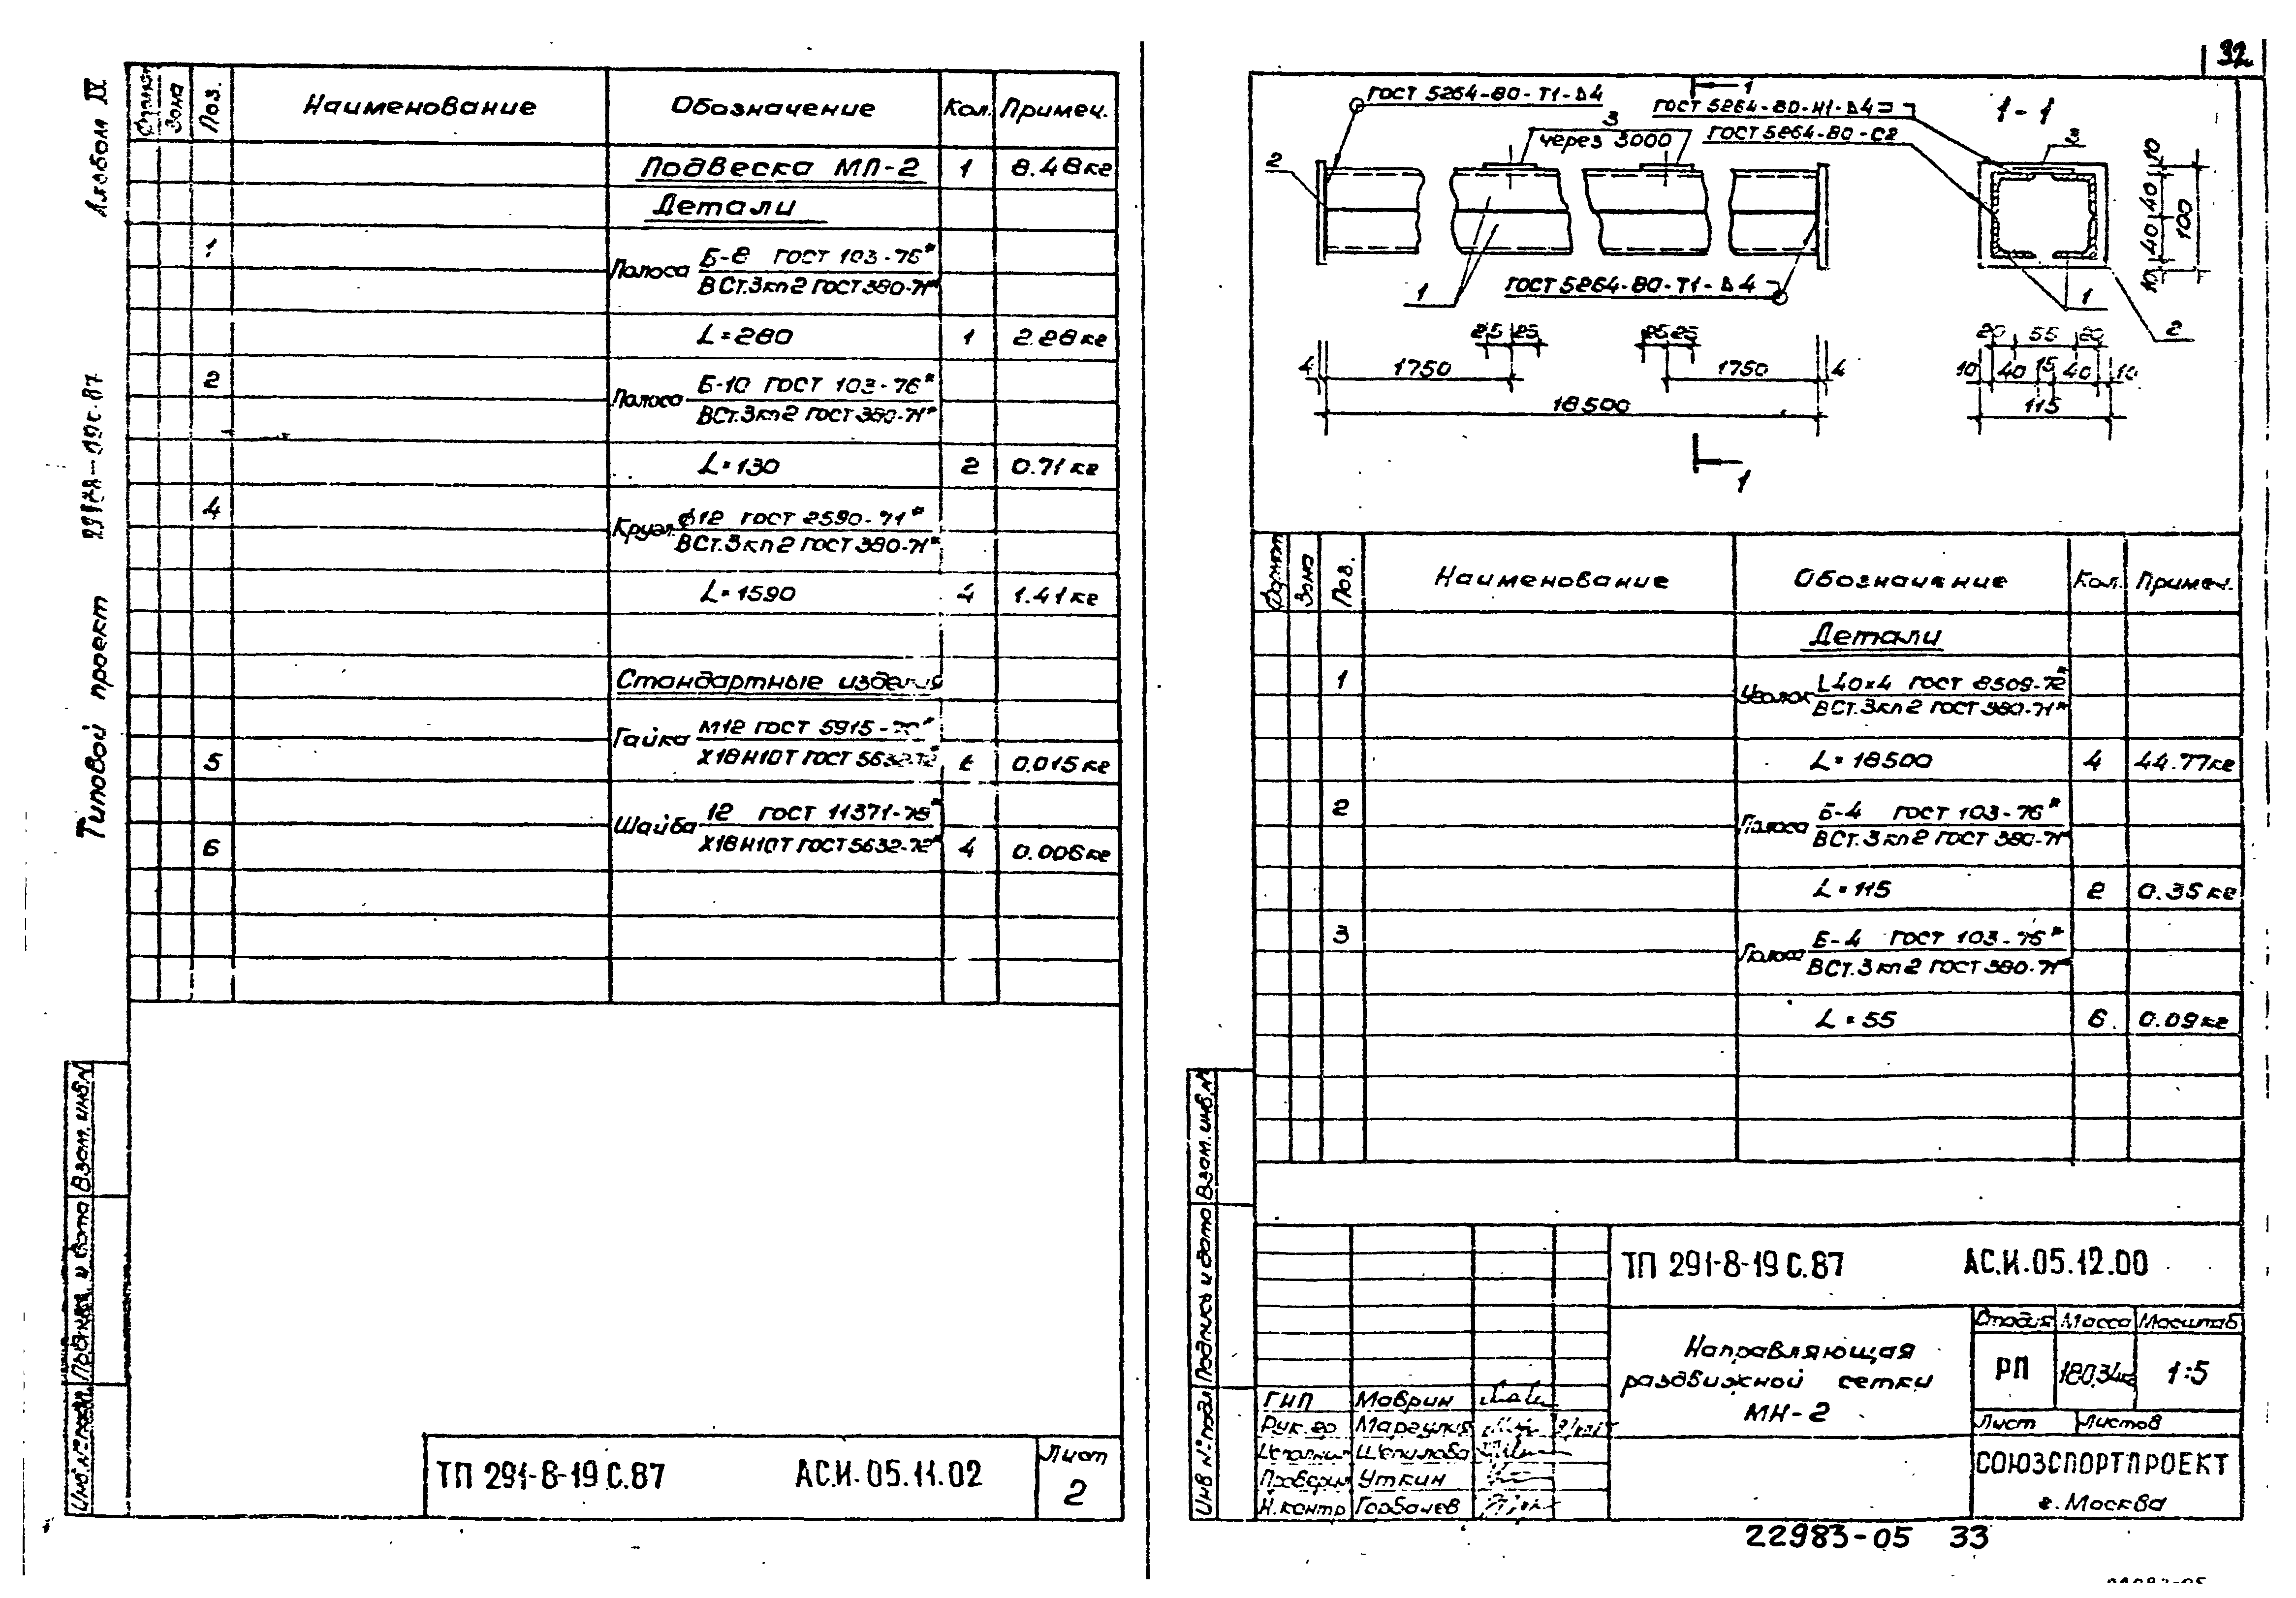 32
Альбом IV
Типовой проект
Формат
Зона
Поз.
Наименование
Обозначение
Кол.
Примеч.
Подвеска МП-2 1 8.48кг
Детали
1
Полоса Б-8 ГОСТ 103-76*
ВСт.3кп2 ГОСТ 380-71*
L=280 1 2.28кг
2
Полоса Б-10 ГОСТ 103-76*
ВСт.3кп2 ГОСТ 380-71*
L=130 2 0.71кг
4
Кругл. ф12 ГОСТ 2590-71*
ВСт.3кп2 ГОСТ 380-71*
L=1590 4 1.41кг
Стандартные изделия
Гайка М12 ГОСТ 5915-70*
5 Х18Н10Т ГОСТ 5632-72* 0.015кг
Шайба 12 ГОСТ 11371-78*
6 Х18Н10Т ГОСТ 5632-72* 4 0.006кг
Инв.№ подл. Подпись и дата Взам.инв.№
ТП 291-8-19 С.87 АС.И.05.11.02
Лист
2
ГОСТ 5264-80-Т1-Δ4
1
ГОСТ 5264-80-Н1-Δ4
1-1
3
через 3000
ГОСТ 5264-80-С2
3
2
10
40
40
100
40
10
1
ГОСТ 5264-80-Т1-Δ4
1
2
25 25
25 25
20 55 20
4 1750
1750 4
10 40 15 40 10
18500
115
1
Формат
Зона
Поз.
Наименование
Обозначение
Кол.
Примеч.
Детали
1
Уголок L40×4 ГОСТ 8509-72*
ВСт.3кп2 ГОСТ 380-71*
L=18500 4 44.77кг
2
Полоса Б-4 ГОСТ 103-76*
ВСт.3кп2 ГОСТ 380-71*
L=115 2 0.35кг
3
Полоса Б-4 ГОСТ 103-76*
ВСт.3кп2 ГОСТ 380-71*
L=55 6 0.09кг
Инв № подл Подпись и дата Взам.инв.№
ТП 291-8-19 С.87 АС.И.05.12.00
Направляющая
раздвижной сетки
МН-2
Стадия Масса Масштаб
РП 180,34кг 1:5
Лист Листов
СОЮЗСПОРТПРОЕКТ
г. Москва
ГИП Маврин
Рук.гр Маргулия
Исполнил Шепилова
Проверил Уткин
Н.контр Горбачев
22983-05 33